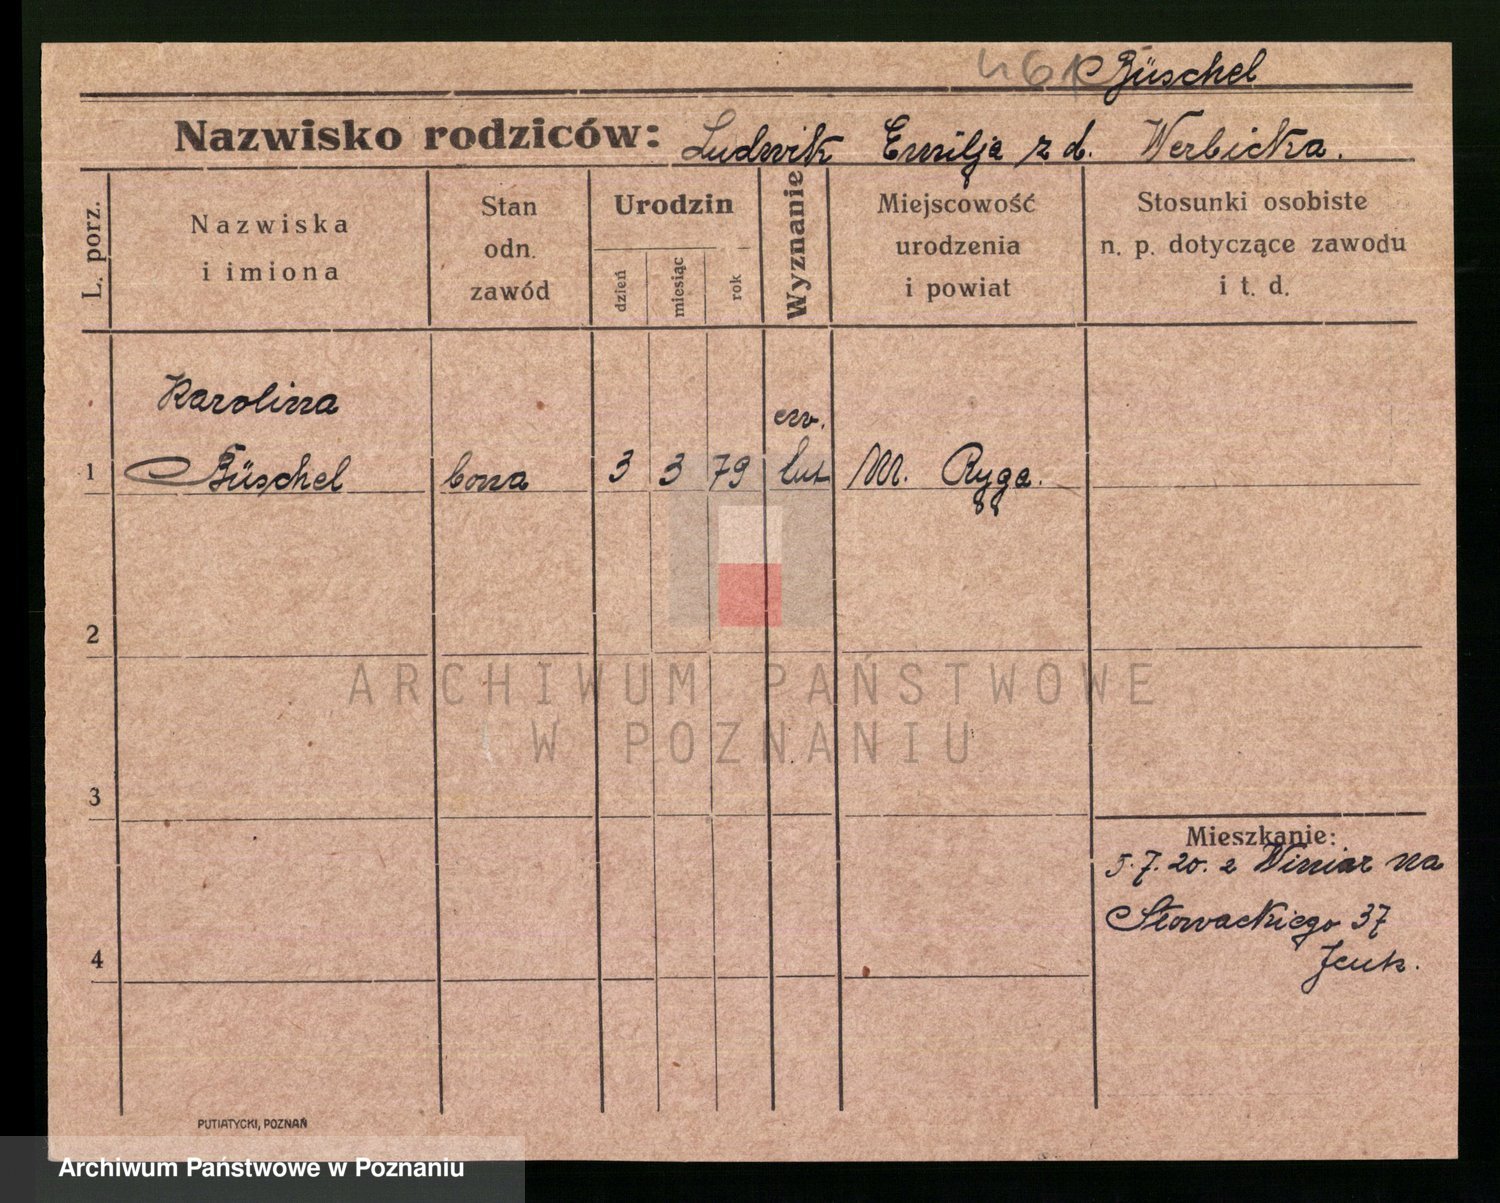 461 Büschel
Nazwisko rodziców: Ludwik Emilja z d. Werbicka.
L. porz.
Nazwiska
i imiona
Stan
odn.
zawód
Urodzin
dzień
miesiąc
rok
Wyznanie
Miejscowość
urodzenia
i powiat
Stosunki osobiste
n. p. dotyczące zawodu
i t. d.
Karolina
ew.
1 Büschel bona 3 3 79 lut M. Ryga.
2
ARCHIWUM PAŃSTWOWE
W POZNANIU
3
Mieszkanie:
5.7.20. z Winiar na
Słowackiego 37
4
PUTIATYCKI, POZNAŃ
Archiwum Państwowe w Poznaniu